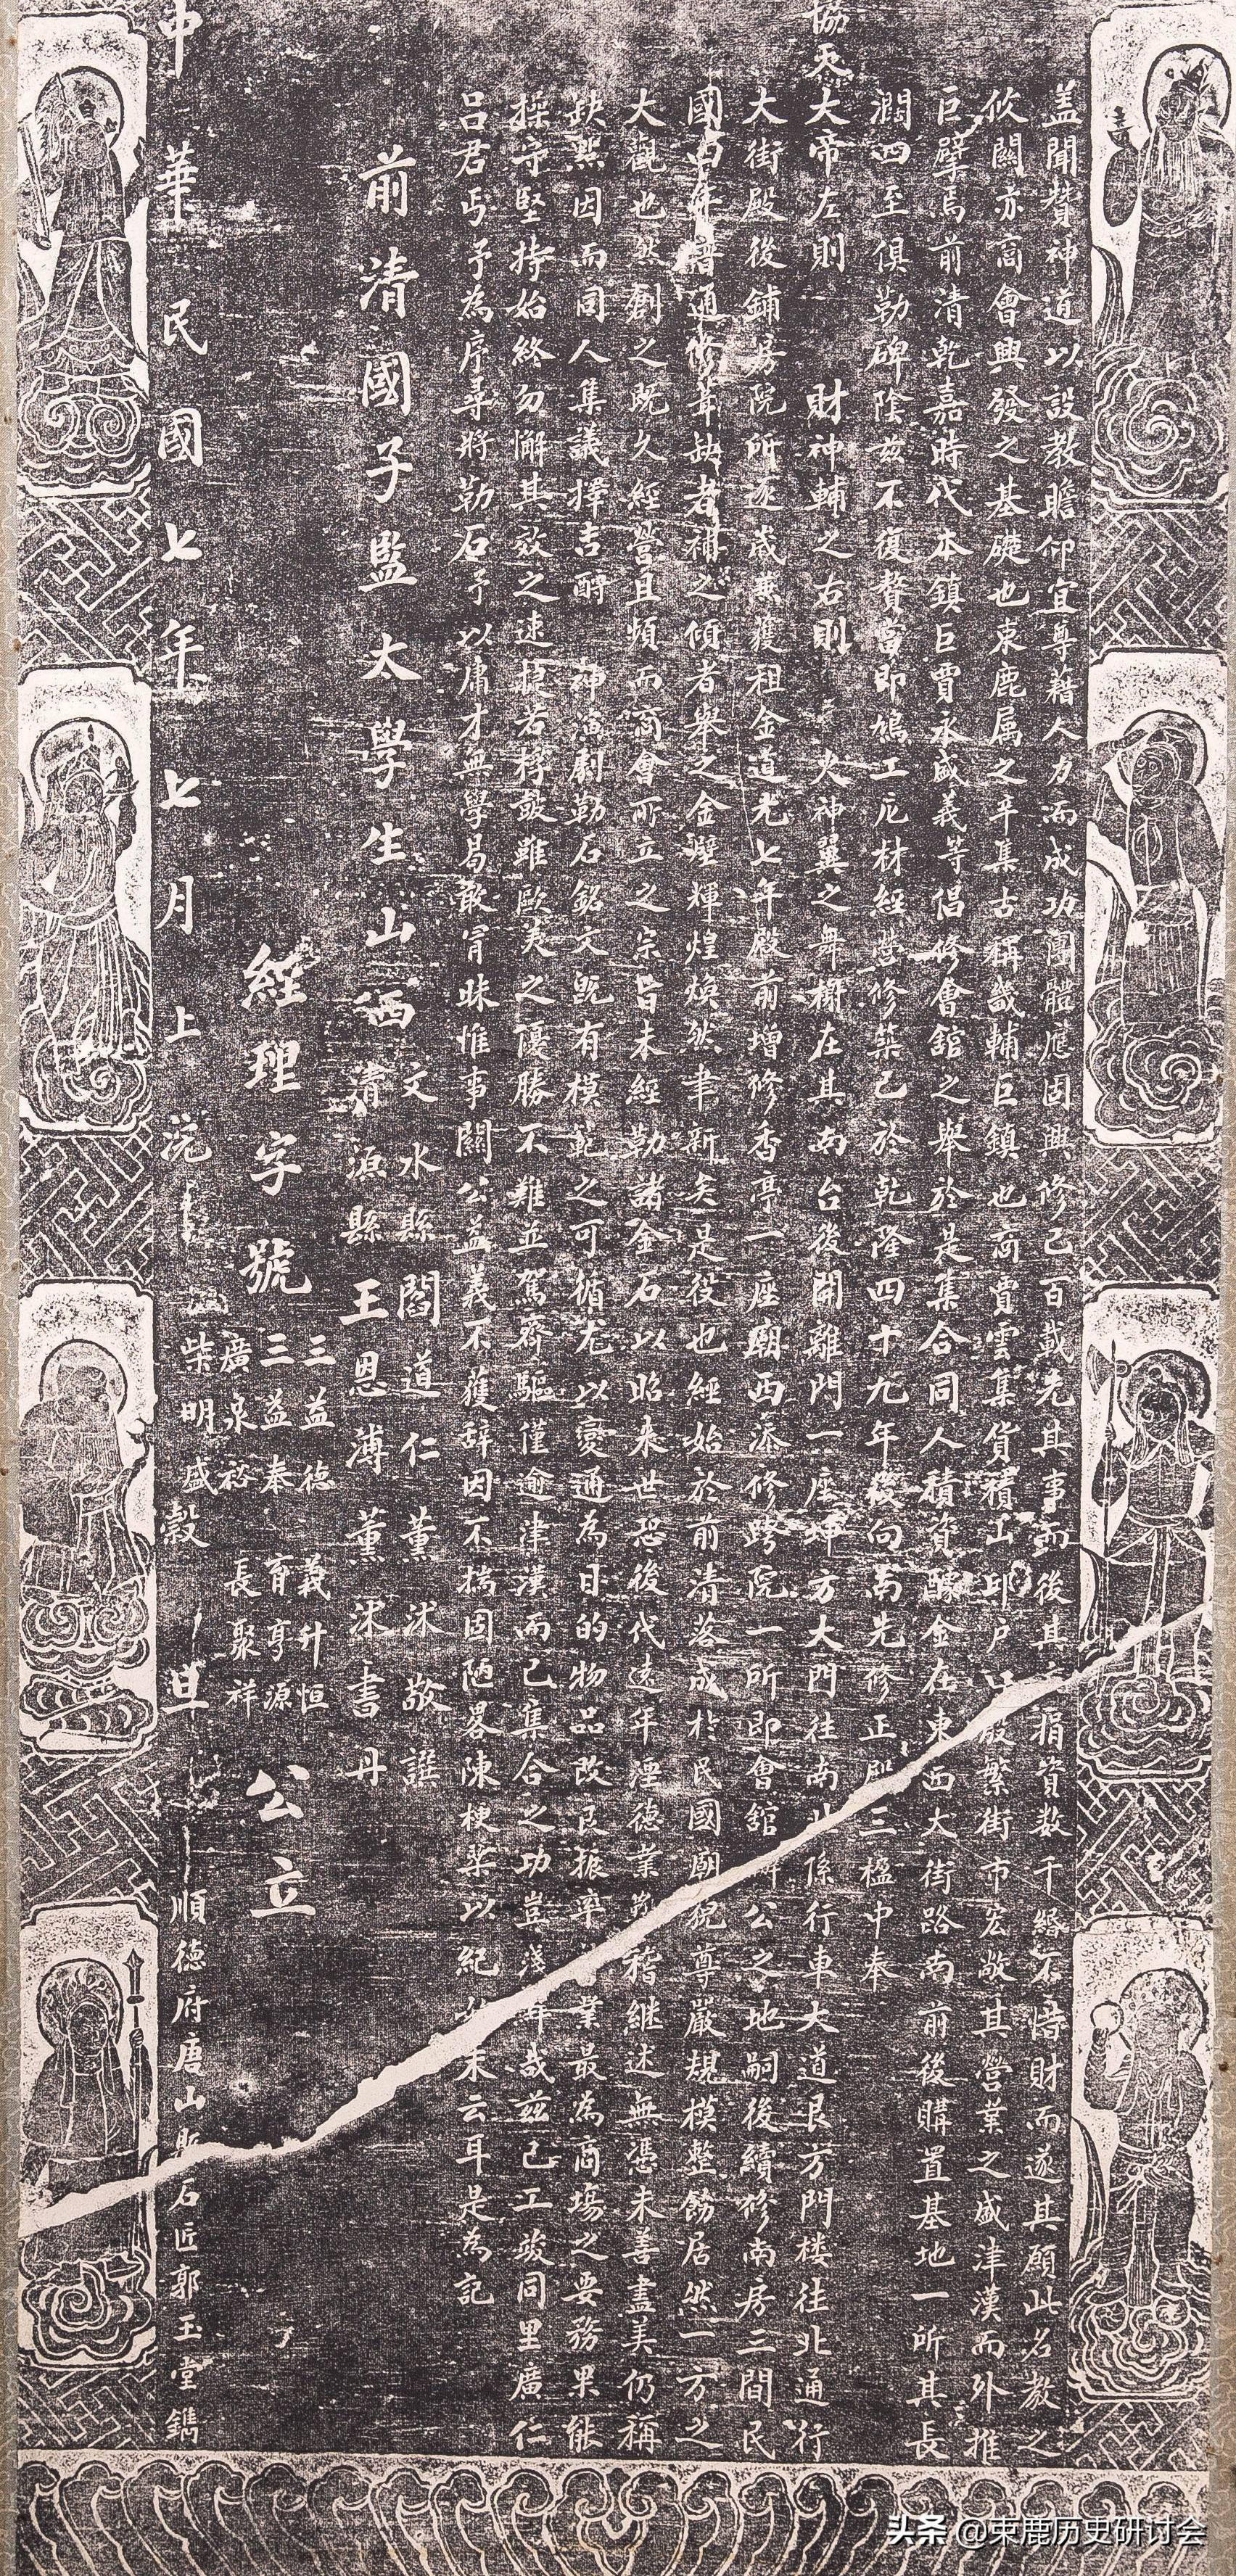 盖聞贊神道以設教瞻仰宜尊藉人力而成功團體應固興修已百載先其事而後其捐資数千緡不悋財而遂其願此名教之
攸關亦商會興發之基礎也束鹿属之辛集古稱畿輔巨鎮也商賈雲集貨積山邱户繁街市宏敞其營業之盛津漢而外推
巨擘焉前清乾嘉時代本鎮巨賈永盛義等倡修會舘之舉於是集合同人積資醵金在東西大街路南前後購置基地一所其長
濶四至俱勒碑陰兹不復贅當即鳩工庀材經營修築已於乾隆四十九年後向前先修正殿三楹中奉
協天大帝左則財神輔之右則火神翼之舞樹在其南台後開離門一座坤方大門往南北係行車大道艮方門楼往北通行
大街殿後鋪房院所逐歲兼獲租金道光七年殿前增修香亭一座廟西添修跨院一所即會舘公之地嗣後續修南房三間民
國四年普通修葺缺者補之傾者舉之金壁輝煌煥然聿新矣是役也經始於前清落成於民國廟貌尊嚴規模整飭居然一方之
大觀也然創之既久經營且頻而商會所立之宗旨未經勒諸金石以昭来世恐後代遠年湮德業難稽継述無憑未善盡美仍稱
缺點因而同人集議擇吉酧神演劇勒石銘文既有模範之可循尤以變通為日的物品改良振率業最為商塲之要務果能
操守堅持始終勿懈其效之速捷若桴鼓雖歐美之優勝不難並駕齊驅僅逾津漢而已集合之功豈淺鮮哉兹已工竣同里廣仁
呂君丐予為序尋將勒石予以庸才無學曷敢冐昧惟事關公益義不獲辞因不揣固陋畧陳梗槩以紀始末云耳是為記
前清國子監太學生山西文水縣閻道仁薰沐敬譔
清源縣王恩溥薰沐書丹
經理字號
三益德義升恒
三益泰育亨源
廣泉裕長聚祥
柴明盛
公立
中華民國七年七月上浣穀旦
順德府唐山縣石匠郭玉堂鐫
头条 @束鹿历史研讨会